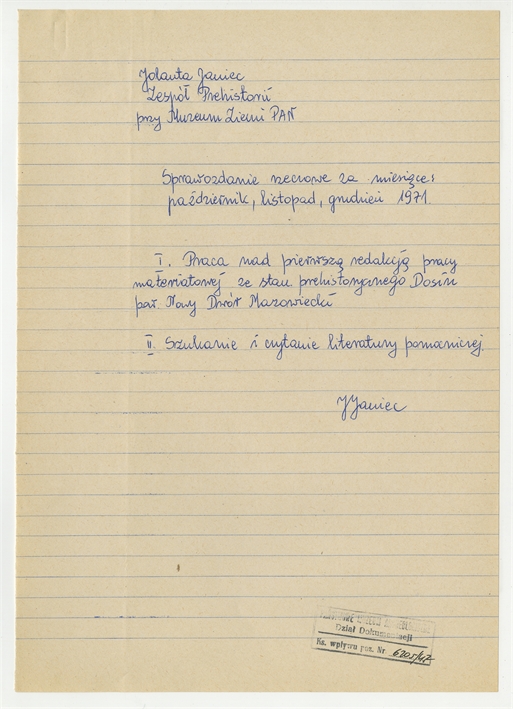 Jolanta Janiec
Zespół Prehistorii
przy Muzeum Ziemi PAN
Sprawozdanie rzeczowe za miesiące:
październik, listopad, grudzień 1971.
I. Praca nad pierwszą redakcją pracy
materiałowej ze stan. prehistorycznego Dosin
pow. Nowy Dwór Mazowiecki
II. Szukanie i czytanie literatury pomocniczej.
JJaniec
Dział Dokumentacji
Ks. wpływu poz. Nr.